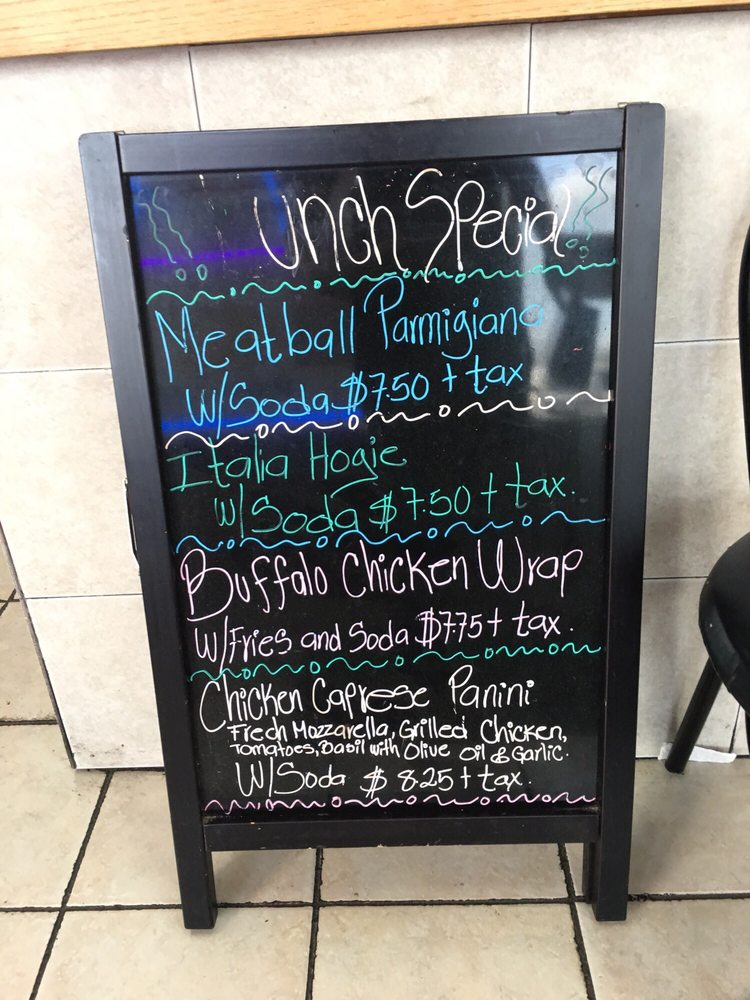 Unch Special
Meatball Parmigiana
W/Soda $7.50 + tax
Italia Hogie
W/Soda $7.50 + tax.
Buffalo Chicken Wrap
W/Fries and Soda $7.75 + tax.
Chicken Caprese Panini
Frech Mozzarella, Grilled Chicken,
Tomatoes, Basil with Olive Oil & Garlic.
W/Soda $ 8.25 + tax.